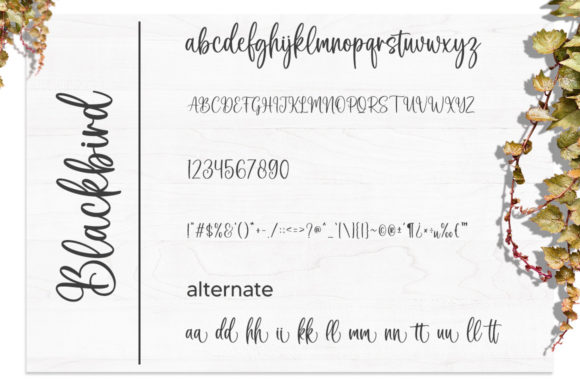 Blackbird
abcdefghijklmnopqrstuvwxyz
ABCDEFGHIJKLMNOPQRSTUVWXYZ
1234567890
alternate
aa dd hh ii kk ll mm nn tt uu ll tt